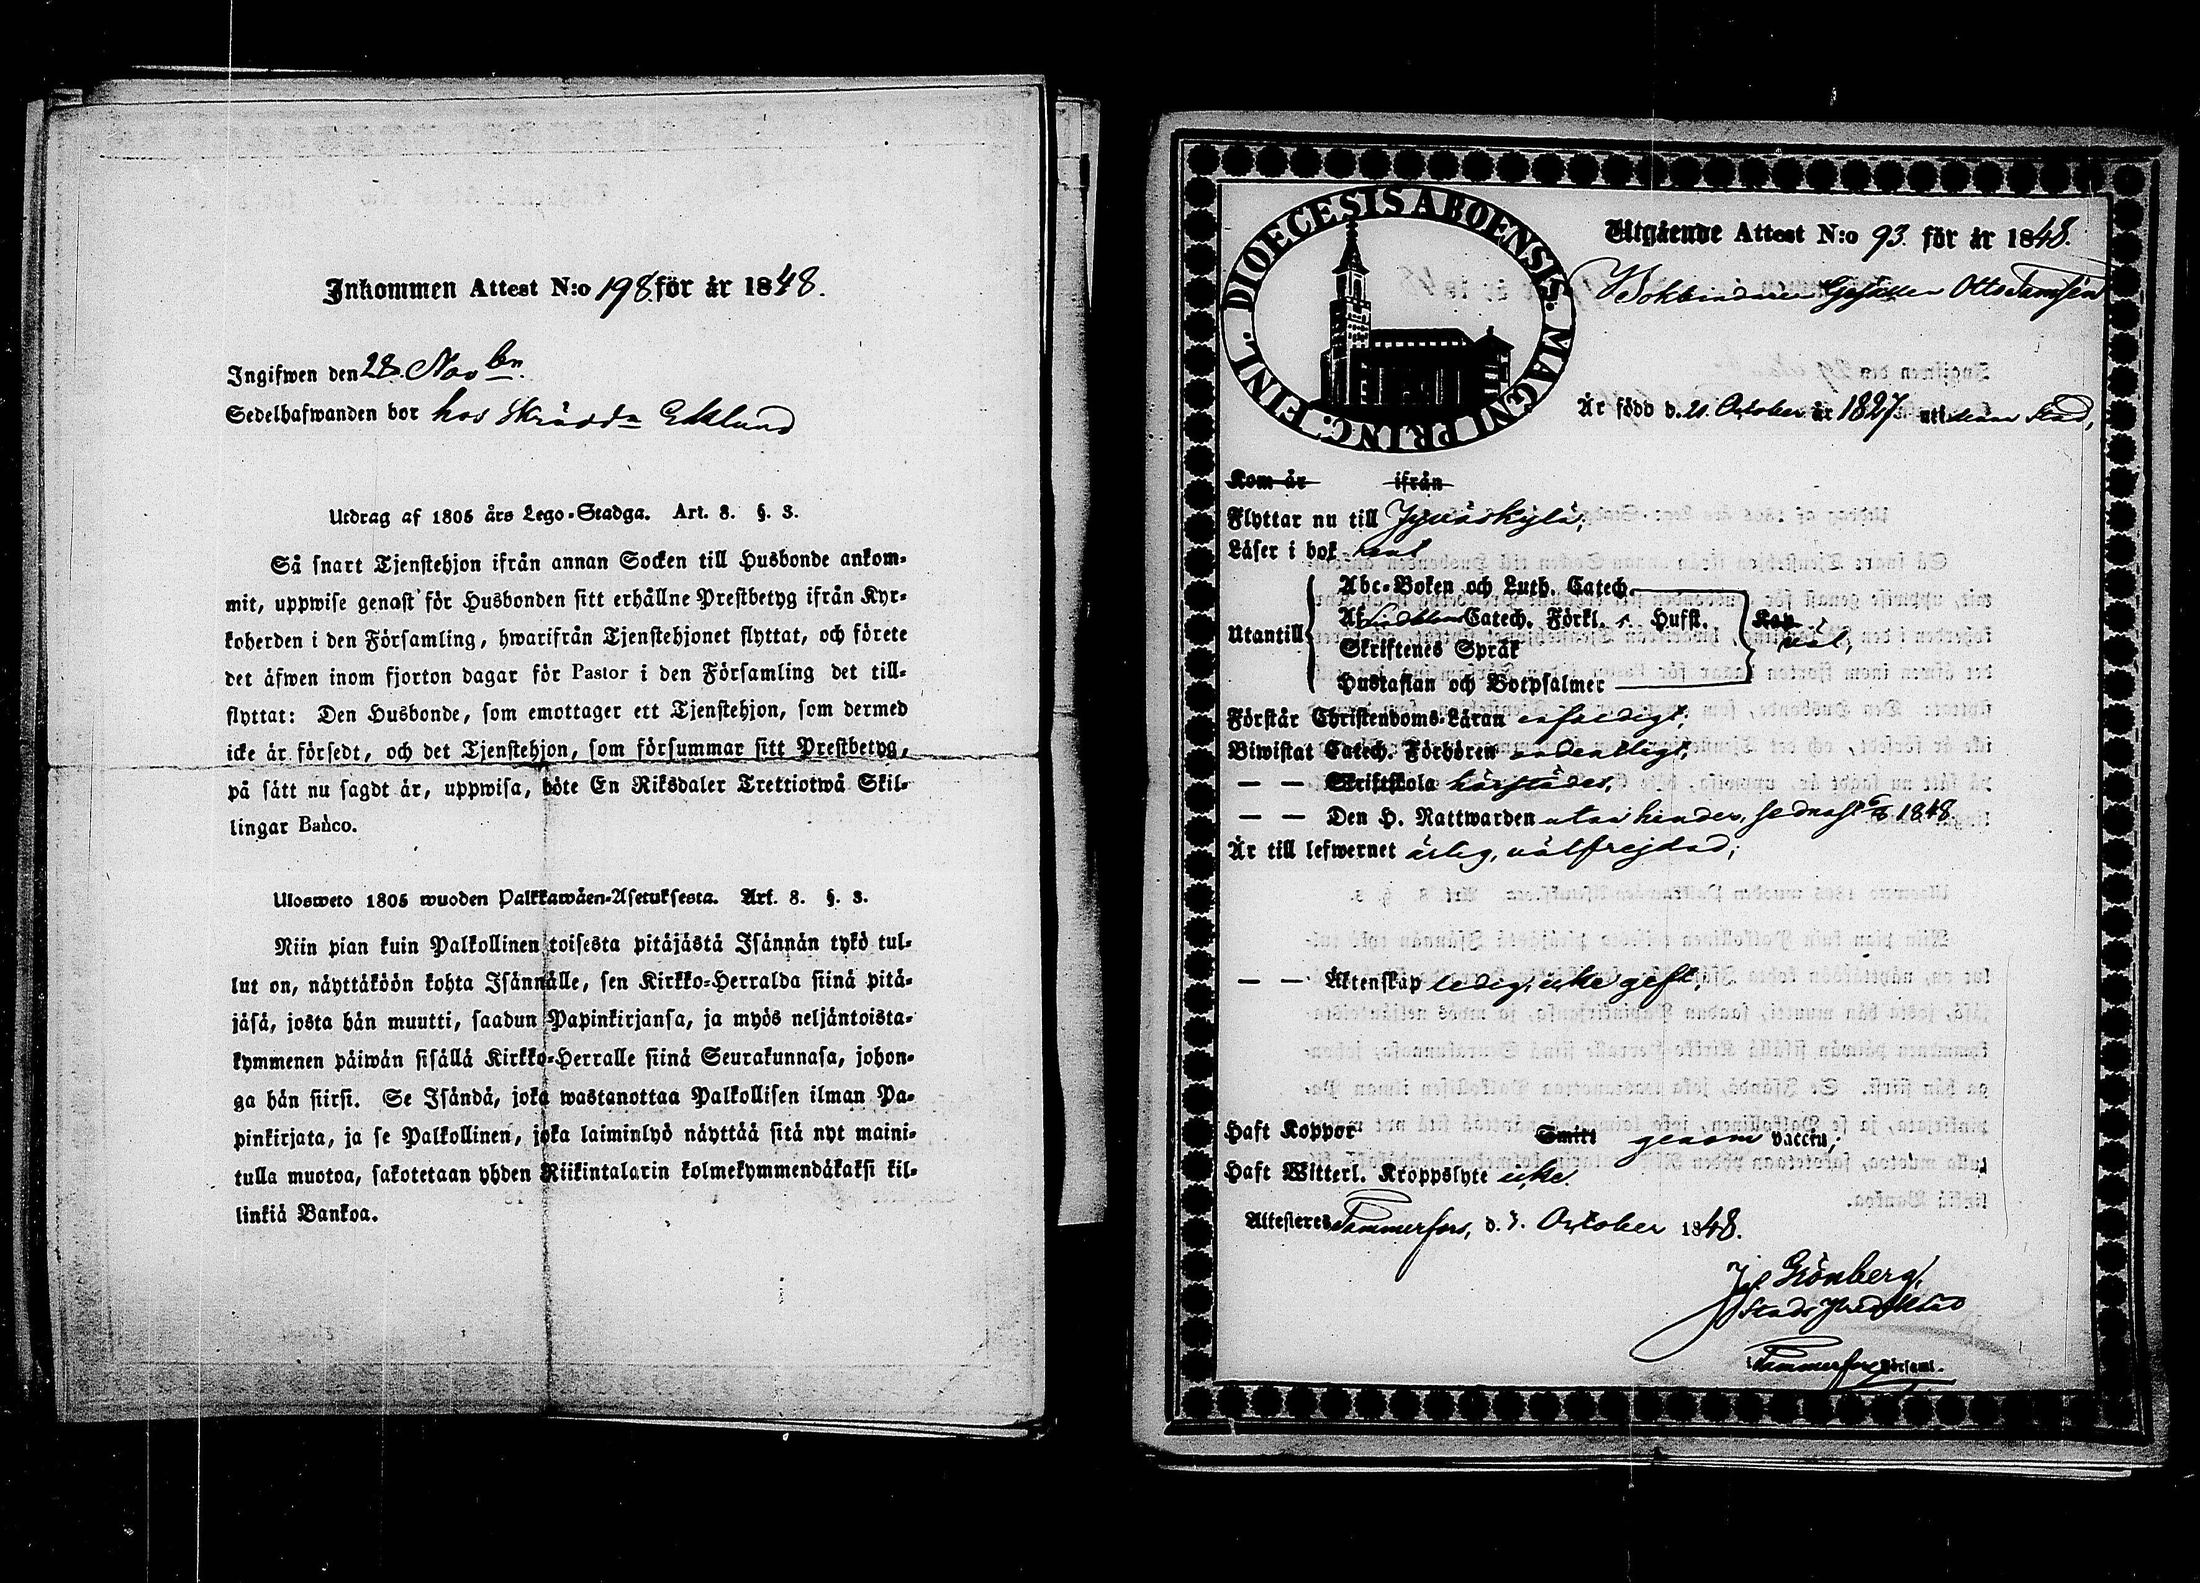 Inkommen Attest N:o 198. för år 1848.
Ingifwen den 28. Novbr.
Sedelhafwanden bor hos Skrädd. Eklund
Utdrag af 1805 års Lego-Stadga. Art. 8. §. 3.
Så snart Tjenstehjon ifrån annan Socken till Husbonde ankom-
mit, uppwise genast för Husbonden sitt erhållne Prestbetyg ifrån Kyr-
koherden i den Församling, hwarifrån Tjenstehjonet flyttat, och förete
det äfwen inom fjorton dagar för Pastor i den Församling det till-
flyttat: Den Husbonde, som emottager ett Tjenstehjon, som dermed
icke är försedt, och det Tjenstehjon, som försummar sitt Prestbetyg,
på sätt nu sagdt är, uppwisa, böte En Riksdaler Trettiotwå Skil-
lingar Banco.
Ulosweto 1805 wuoden Palkkawäen-Asetuksesta. Art. 8. §. 3.
Niin pian kuin Palkollinen toisesta pitäjästä Isännän tykö tul-
lut on, näyttäköön kohta Isännälle, sen Kirkko-Herralda siinä pitä-
jäsä, josta hän muutti, saadun Papinkirjansa, ja myös neljäntoista-
kymmenen päiwän sisällä Kirkko-Herralle siinä Seurakunnasa, johon-
ga hän siirsi. Se Isändä, joka wastanottaa Palkollisen ilman Pa-
pinkirjata, ja se Palkollinen, joka laiminlyö näyttää sitä nyt maini-
tulla muotoa, sakotetaan yhden Riikintalarin kolmekymmendäkaksi kil-
linkiä Bankoa.
DIOECESIS ABOENSIS. MAGNI PRINC. FINL.
Utgående Attest N:o 93. för år 1848.
Bokbindare Gesällen Otto Tamsén
Är född d. 21. October år 1827. uti denna Stad,
Kom år ifrån
Flyttar nu till Jyväskylä;
Läser i bok
Abc-Boken och Luth. Catech.
Utantill Af Lindbloms Catech. Förkl. Husst. Kap.
Skriftenes Språk väl;
Hustaflan och Botpsalmer
Förstår Christendoms-Läran
Biwistat Catech. Förhören ordentligt;
— — Skriftskola härstädes,
— — Den H. Nattwarden utan hinder, sednast 1848
Är till lefwernet ärlig, välfrejdad;
— — Äktenskap ledig, icke gift;
Haft Koppor Smitt genom vaccin;
Haft Witterl. Kroppslyte icke.
Attesteres Tammerfors, d. 7. October 1848.
Grönberg,
i Tammerfors Församl.